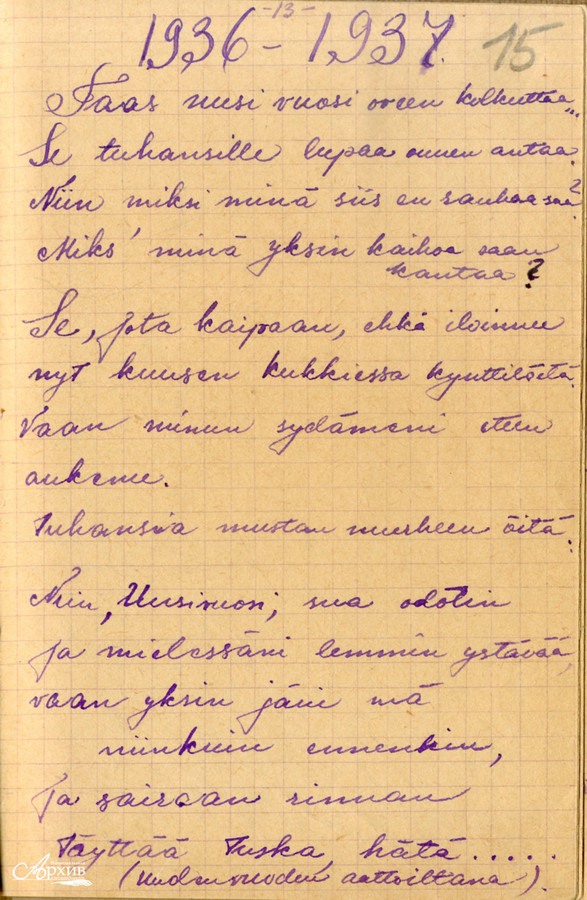 -13-
1936 – 1937.
15
Taas uusi vuosi oveen kolkuttaa...
Se tuhansille lupaa onnen antaa.
Niin miksi minä siis en rauhaa saa?
Miks' minä yksin kaihoa saan
kantaa?
Se, jota kaipaan, ehkä iloinnee
nyt kuusen kukkiessa kynttilöitä.
Vaan minun sydämeni eteen
aukenee.
Tuhansia mustan murheen öitä.
Niin, Uusivuosi, sua odotin
ja mielessäni lemmin ystävää,
vaan yksin jäin mä
niinkuin ennenkin,
Ja sairaan rinnan
Täyttää Tuska, hätä......
(Uudenvuoden aattoiltana).
Архив